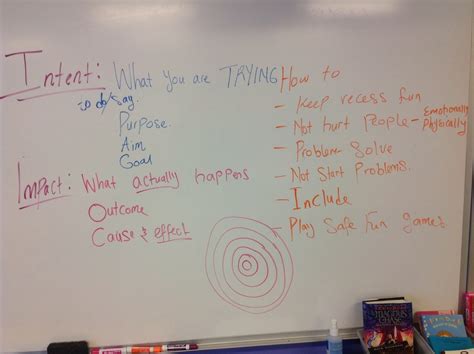 Intent: What you are TRYING
to do/say.
Purpose.
Aim
Goal
Impact: What actually happens
Outcome
Cause & effect
How to
- Keep recess fun
- Not hurt people - Emotionally
Physically
- Problem Solve
- Not Start Problems.
- Include
- Play Safe Fun Games